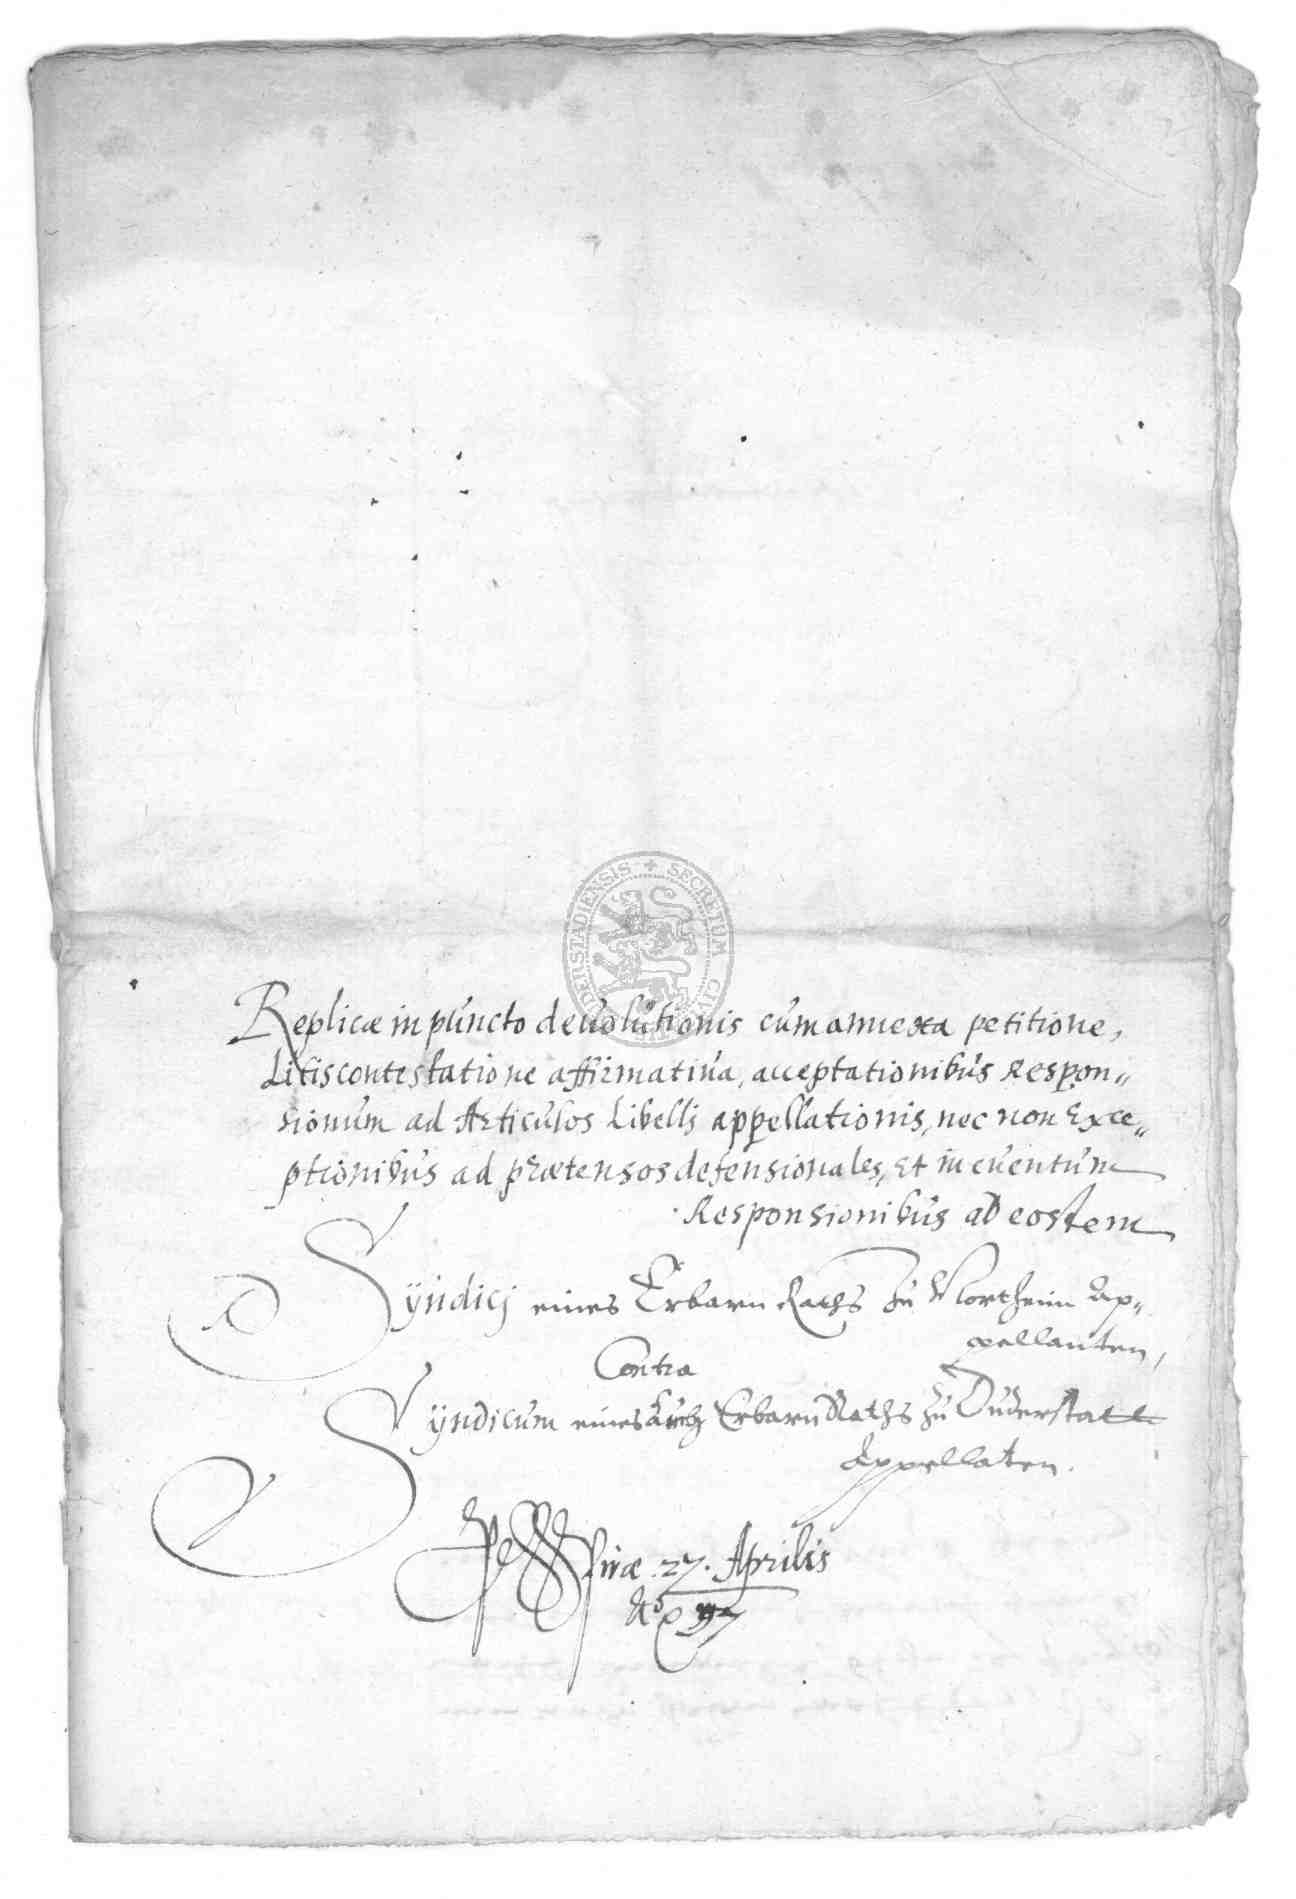 SECRETUM CIVITATIS DUDERSTADIENSIS
Replicæ in puncto deuolutionis cum annexa petitione,
Litiscontestatione affirmatiua, acceptationibus Respon„
sionum ad Articulos Libelli appellationis, nec non Exce„
ptionibus ad prætensos defensionales, Et in euentum
Responsionibus ad eosdem
Syndicj eines Erbarn Raths zu Northeim Ap„
pellanten,
Contra
Syndicum eines auch Erbarn Raths zu Duderstatt
Appellaten.
Spiræ .27. Aprilis
Aō 97